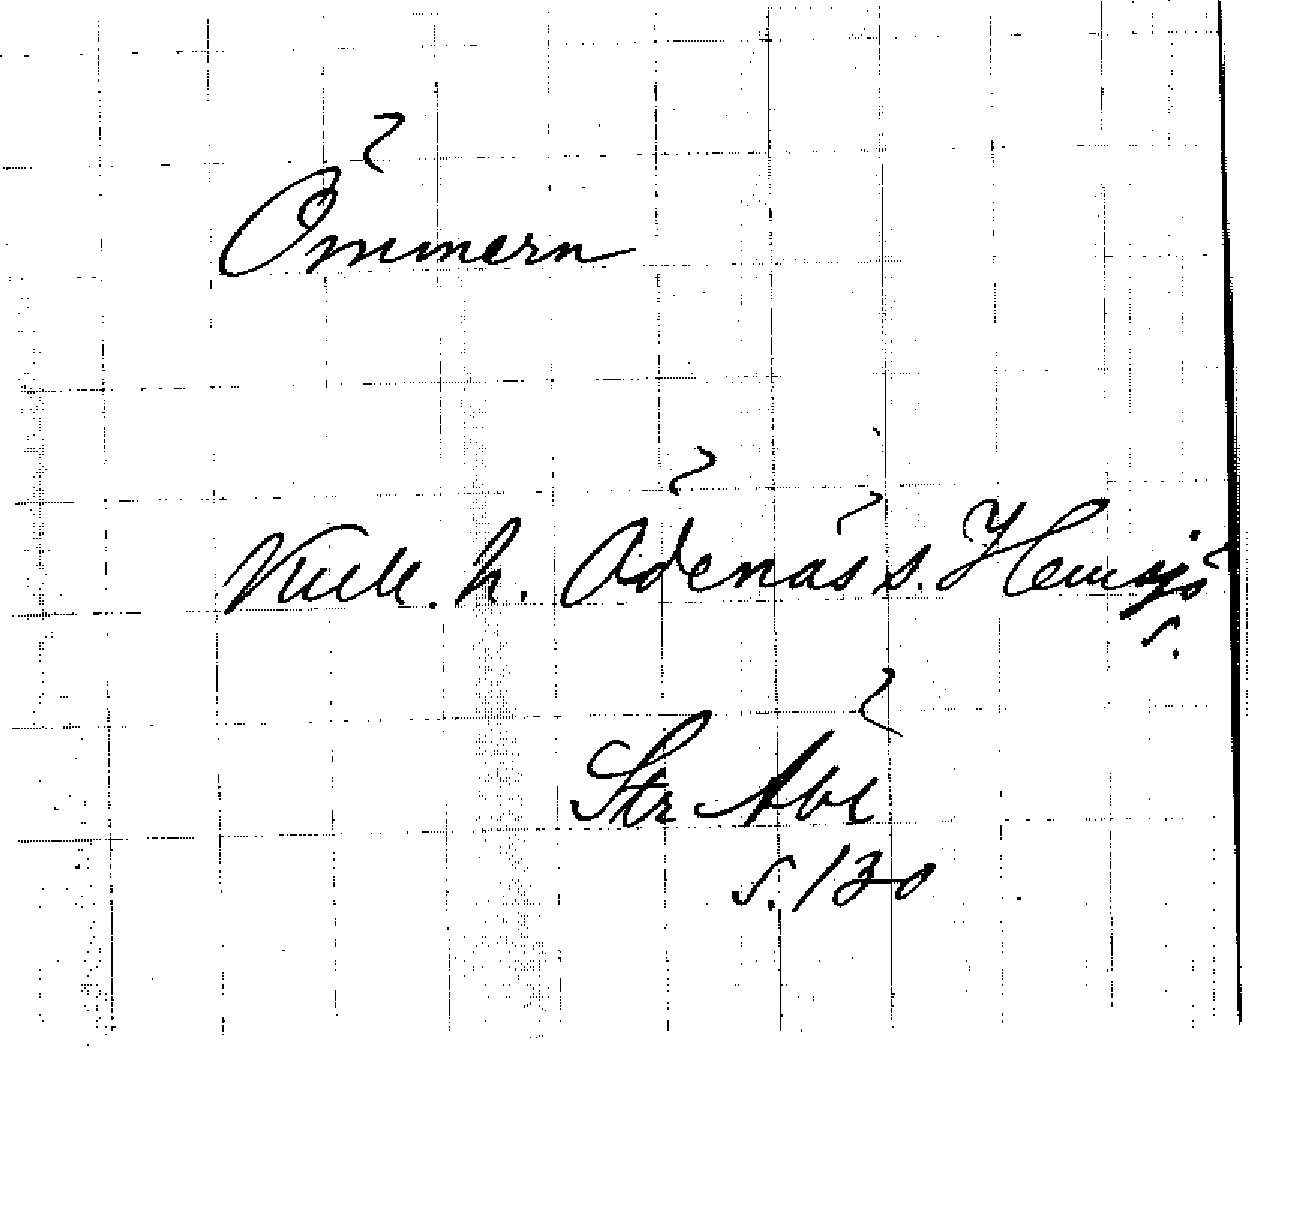 Ömmern
Kull. h. Ödenäs s. Hemsjö
s.
Str Abc
s. 130